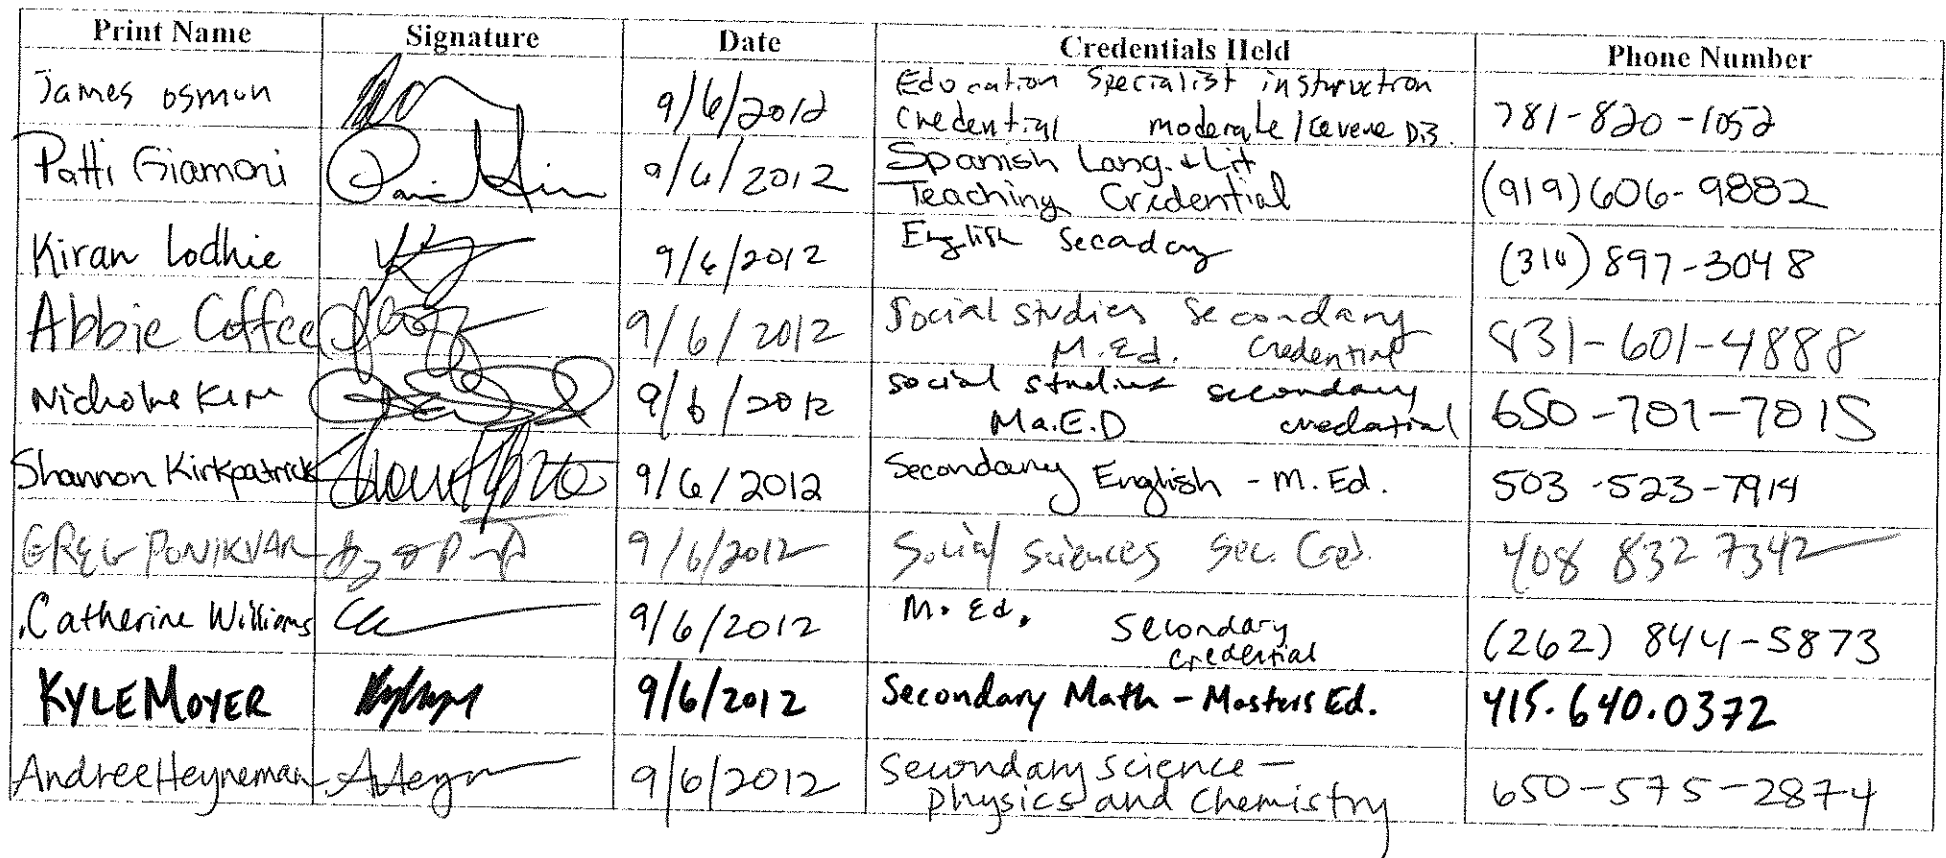 Print Name Signature Date Credentials Held Phone Number
James Osmun 9/6/2012 Education Specialist instruction
Credential moderate/severe Dis. 781-820-1052
Patti Giamoni 9/6/2012 Spanish Lang. & Lit
Teaching Credential (919)606-9882
Kiran Lodhie 9/6/2012 English 897-3048
Abbie Coffee 9/6/2012 Social Studies Secondary
M.Ed. Credential 831-601-4888
9/6/2012 social studies secondary
Ma.E.D credential 650-701-7015
Shannon Kirkpatrick 9/6/2012 Secondary English - M.Ed. 503-523-7914
GREG PONIKVAR 9/6/2012 Social Sciences Sec. Cred. 408 832 7342
Catherine Williams 9/6/2012 M. Ed. Secondary
credential (262) 844-5873
KYLE MOYER 9/6/2012 Secondary Math - Masters Ed. 415.640.0372
Andree Heyneman 9/6/2012 Secondary Science -
physics and Chemistry 650-575-2874